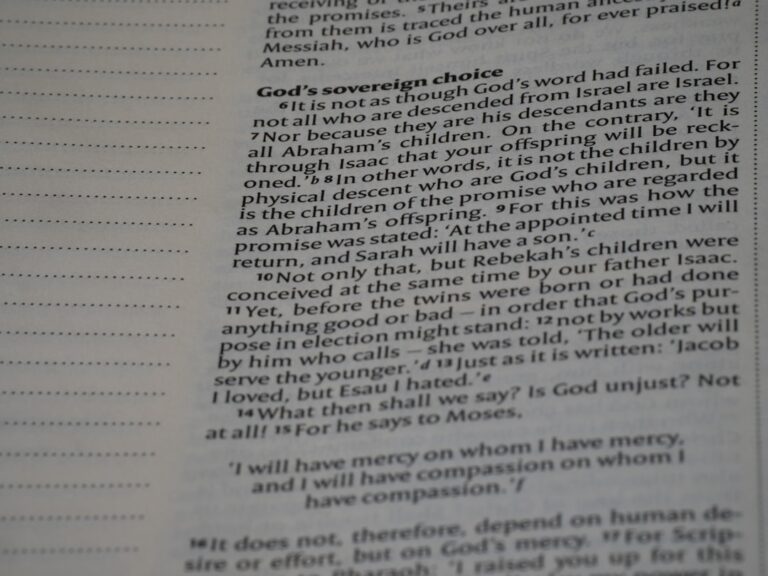 receiving of
the promises. ⁵Theirs are
from them is traced the human ancestry
Messiah, who is God over all, for ever praised!ᵃ
Amen.
God's sovereign choice
⁶It is not as though God's word had failed. For
not all who are descended from Israel are Israel.
⁷Nor because they are his descendants are they
all Abraham's children. On the contrary, 'It is
through Isaac that your offspring will be reck-
oned.'ᵇ ⁸In other words, it is not the children by
physical descent who are God's children, but it
is the children of the promise who are regarded
as Abraham's offspring. ⁹For this was how the
promise was stated: 'At the appointed time I will
return, and Sarah will have a son.'ᶜ
¹⁰Not only that, but Rebekah's children were
conceived at the same time by our father Isaac.
¹¹Yet, before the twins were born or had done
anything good or bad – in order that God's pur-
pose in election might stand: ¹²not by works but
by him who calls – she was told, 'The older will
serve the younger.'ᵈ ¹³Just as it is written: 'Jacob
I loved, but Esau I hated.'ᵉ
¹⁴What then shall we say? Is God unjust? Not
at all! ¹⁵For he says to Moses,
'I will have mercy on whom I have mercy,
and I will have compassion on whom I
have compassion.'ᶠ
¹⁶It does not, therefore, depend on human de-
sire or effort, but on God's mercy. ¹⁷For Scrip-
Pharaoh: 'I raised you up for this
power in